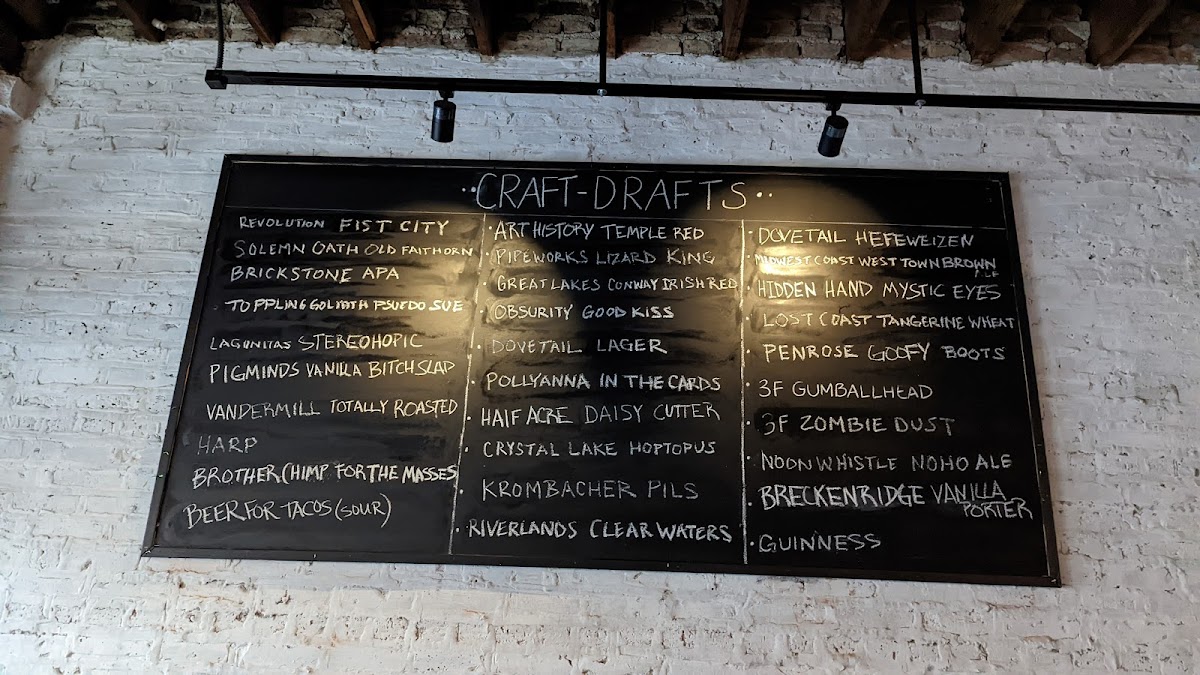 ··CRAFT-DRAFTS··
REVOLUTION FIST CITY
SOLEMN OATH OLD FAITHORN
BRICKSTONE APA
TOPPLING GOLIATH PSUEDO SUE
LAGUNITAS STEREOHOPIC
PIGMINDS VANILLA BITCHSLAP
VANDERMILL TOTALLY ROASTED
HARP
BROTHER CHIMP FOR THE MASSES
BEER FOR TACOS (SOUR)
·ART HISTORY TEMPLE RED
·PIPEWORKS LIZARD KING
·GREAT LAKES CONWAY IRISH RED
·OBSURITY GOOD KISS
·DOVETAIL LAGER
·POLLYANNA IN THE CARDS
·HALF ACRE DAISY CUTTER
·CRYSTAL LAKE HOPTOPUS
·KROMBACHER PILS
·RIVERLANDS CLEAR WATERS
·DOVETAIL HEFEWEIZEN
·MIDWEST COAST WEST TOWN BROWN
ALE
·HIDDEN HAND MYSTIC EYES
·LOST COAST TANGERINE WHEAT
·PENROSE GOOFY BOOTS
·3F GUMBALLHEAD
·3F ZOMBIE DUST
·NOON WHISTLE NOHO ALE
·BRECKENRIDGE VANILLA
PORTER
·GUINNESS